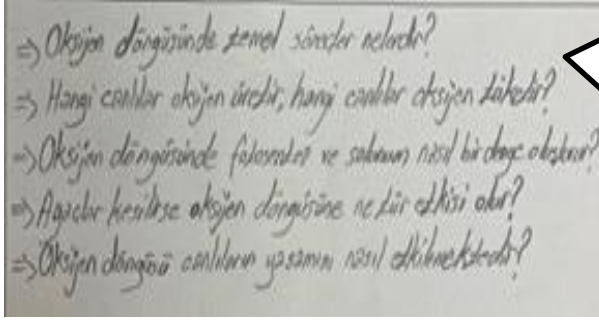 => Oksijen döngüsünde temel süreçler nelerdir?
=> Hangi canlılar oksijen üretir, hangi canlılar oksijen tüketir?
=> Oksijen döngüsünde fotosentez ve solunum nasıl bir denge oluşturur?
=> Ağaçlar kesilirse oksijen döngüsüne ne tür etkisi olur?
=> Oksijen döngüsü canlıların yaşamını nasıl etkilemektedir?